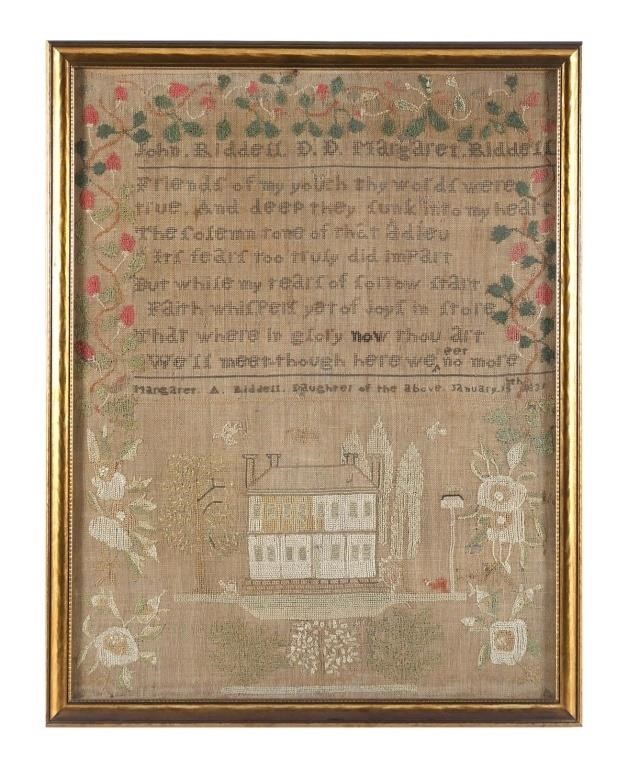 John. Riddell. D. D. Margaret. Riddell
Friends of my youth thy words were
true. And deep they sunk into my heart
The solemn tone of that adieu
Its fears too truly did impart
But while my tears of sorrow start
Faith whispers yet of joys in store
That where in glory now thou art
We'll meet though here we ^ meet no more
Margaret. A. Riddell. Daughter of the above. January.